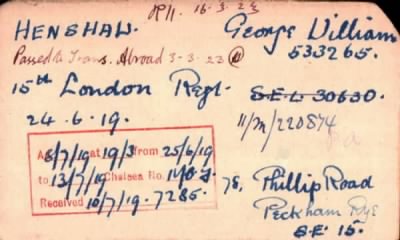 O.P.11. 16.3.23
HENSHAW. George William
Passed to Trans. Abroad 3-3-23 533265.
15th London Regt. S.E.L 30630.
24.6.19. 11/M/220874
A 8/7/19 at 19/3 from 25/6/19
to 13/7/19 Chelsea No.
Received 10/7/19. 7285.
78, Phillip Road
Peckham Rye
S.E 15.